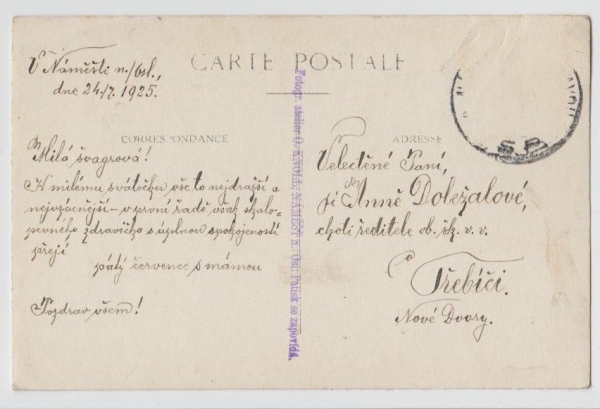 CARTE POSTALE
V Náměšti n./Osl.,
dne 24./7. 1925.
CORRESPONDANCE
Milá švagrová!
K milému svátečku vše to nejdražší a
nejvzácnější – v první řadě však skalo-
pevného zdravíčka s úplnou spokojeností
přejí
pátý červenec s mámou
Pozdrav všem!
Fotogr. atelier O. KNOLL, NÁMĚŠŤ n. Osl. Patisk se zapovídá.
ADRESSE
Velectěné Paní,
pí Anně Doležalové,
choti ředitele ob. šk. v. v.
v Třebíči.
Nové Dvory.